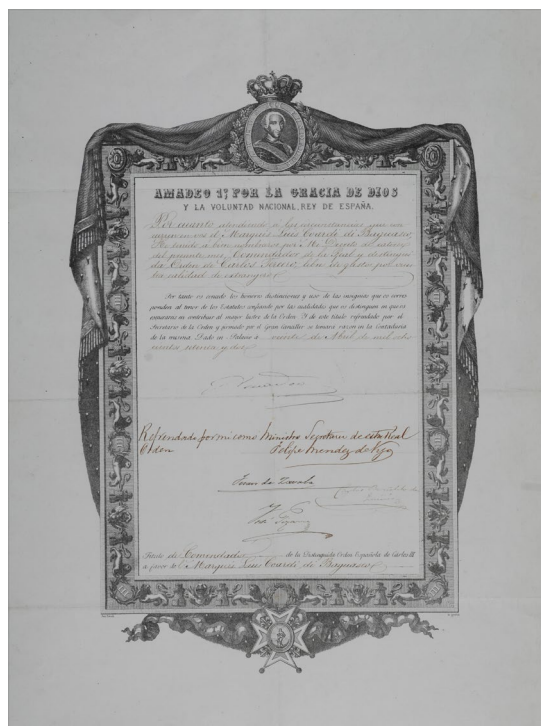 AMADEO 1º POR LA GRACIA DE DIOS
Y LA VOLUNTAD NACIONAL, REY DE ESPAÑA.
Por cuanto atendiendo a las circunstancias que
concurren en vos el Marques Luis Coardi de Bagnasco
He tenido a bien nombraros por Mi Decreto de
del presente mes, Comendador de la Real y distingui-
da Orden de Carlos Tercero, libre de gastos por vues-
tra calidad de estrangero
Por tanto os concedo los honores distinciones y uso de las insignias que os corres
ponden al tenor de los Estatutos confiando por las cualidades que os distinguen en que os
esmerareis en contribuir al mayor lustre de la Orden. Y de este título refrendado por el
Secretario de la Orden y firmado por el Gran Canciller se tomara razon en la Contaduria
de la misma. Dado en Palacio a veinte de Abril de mil ocho
cientos setenta y dos
Amadeo
Refrendado por mi como Ministro Secretario de esta Real
Orden Felipe Mendez de Vigo
Juan de Zavala
Título de Comendador de la Distinguida Orden Española de Carlos III
a favor del Marques Luis Coardi de Bagnasco